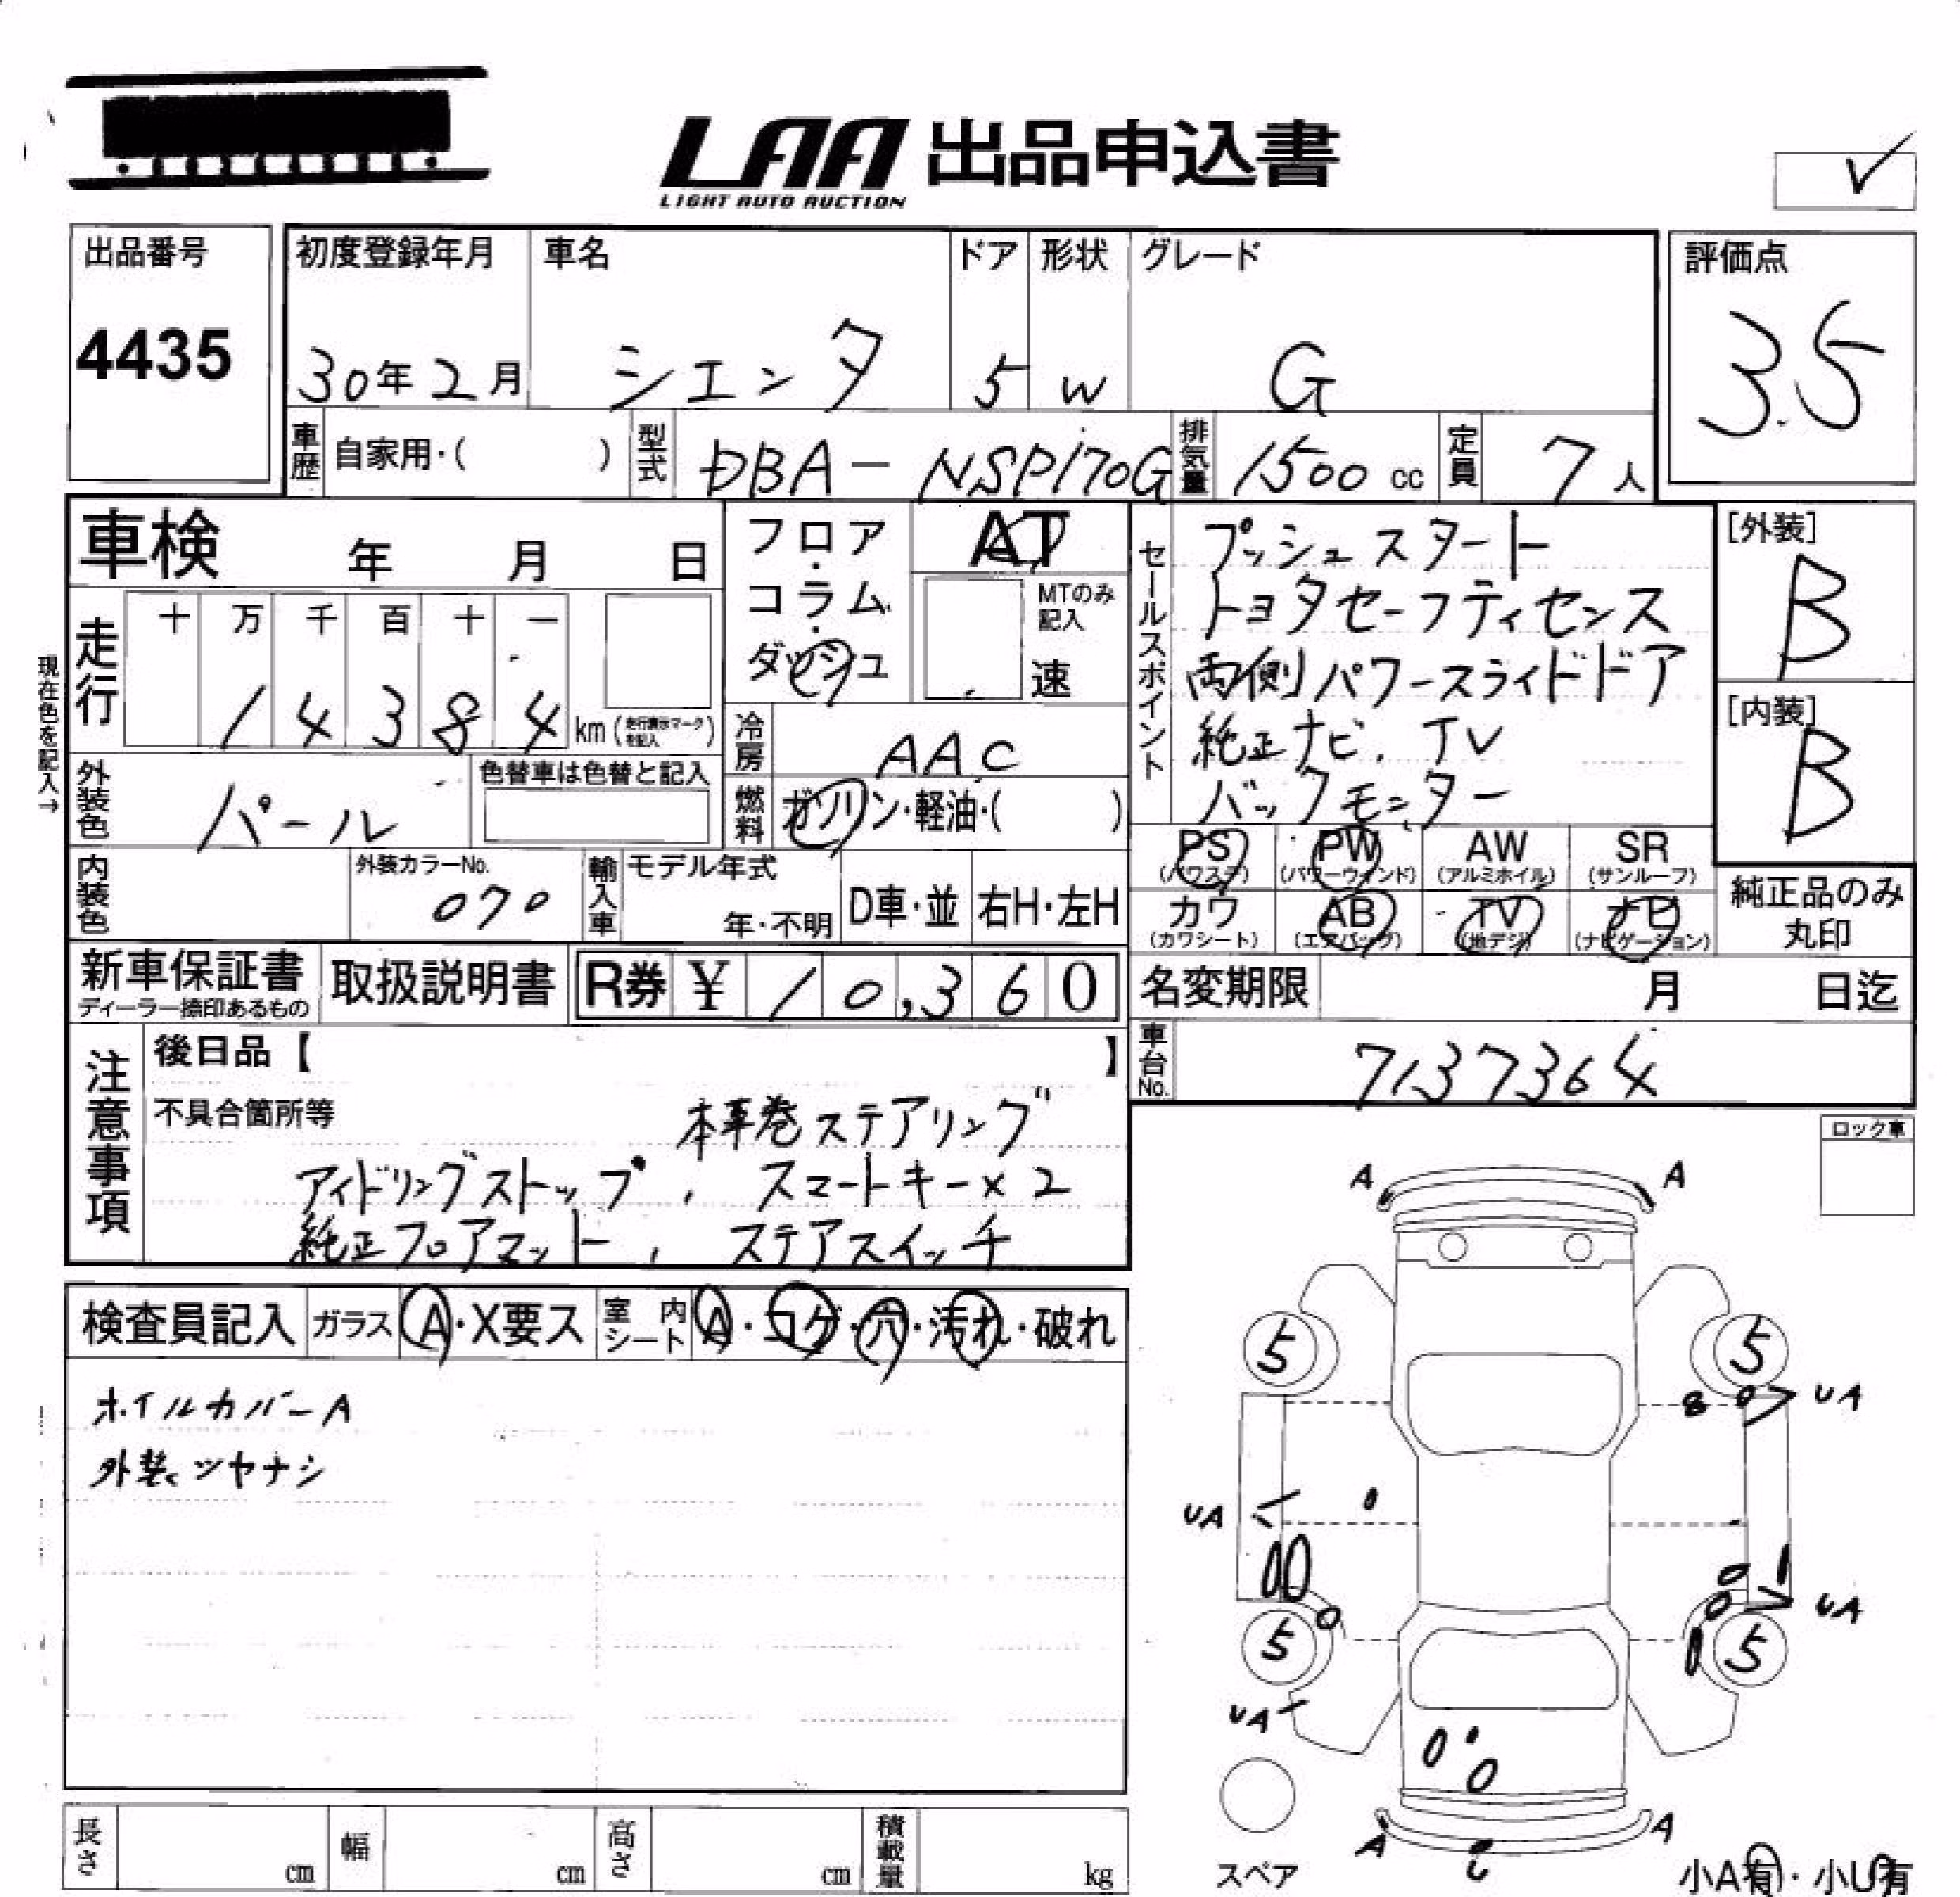 LAA 出品申込書
LIGHT AUTO AUCTION
出品番号
4435
初度登録年月
30年2月
車名
シエンタ
ドア
5
形状
W
グレード
G
評価点
3.5
車歴
自家用・( )
型式
DBA-NSP170G
排気量
1500 cc
定員
7人
車検 年 月 日
フロア・コラム・ダッシュ
AT
MTのみ記入
速
セールスポイント
プッシュスタート
トヨタセーフティセンス
両側パワースライドドア
純正ナビ、TV
バックモニター
[外装]
B
[内装]
B
現在色を記入→
走行
十 万 千 百 十 一
1 4 3 8 4 km (走行表示マークを記入)
冷房
AAC
燃料
ガソリン・軽油・( )
外装色
パール
色替車は色替と記入
内装色
外装カラーNo.
070
輸入車
モデル年式
年・不明
D車・並
右H・左H
PS
(パワステ)
PW
(パワーウィンド)
AW
(アルミホイル)
SR
(サンルーフ)
カワ
(カワシート)
AB
(エアバッグ)
TV
(地デジ)
ナビ
(ナビゲーション)
純正品のみ
丸印
新車保証書
ディーラー捺印あるもの
取扱説明書
R券 ¥ 10,360
名変期限 月 日迄
車台No.
7137364
注意事項
後日品【 】
不具合箇所等
本革巻ステアリング
アイドリングストップ、スマートキー×2
純正フロアマット、ステアスイッチ
検査員記入
ガラス
A・X要ス
室内シート
A・コゲ・穴・汚れ・破れ
ホイルカバーA
外装ツヤナシ
ロック車
A A
5 5
UA
UA
UA
5 5
UA
A A
スペア
小A有・小U有
長さ cm
幅 cm
高さ cm
積載量 kg